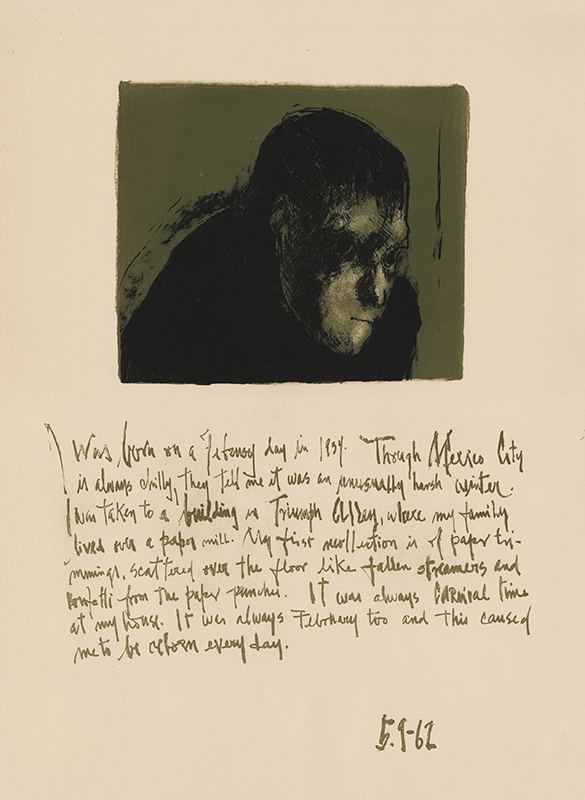 I was born on a Febuary day in 1934. Though Mexico City
is always chilly, they tell me it was an unusually harsh winter.
I was taken to a building in Triumph Alley, where my family
lived over a paper mill. My first recollection is of paper tri-
mmings, scattered over the floor like fallen streamers and
confetti from the paper punches. It was always carnival time
at my house. It was always February too and this caused
me to be reborn every day.
5.9-62